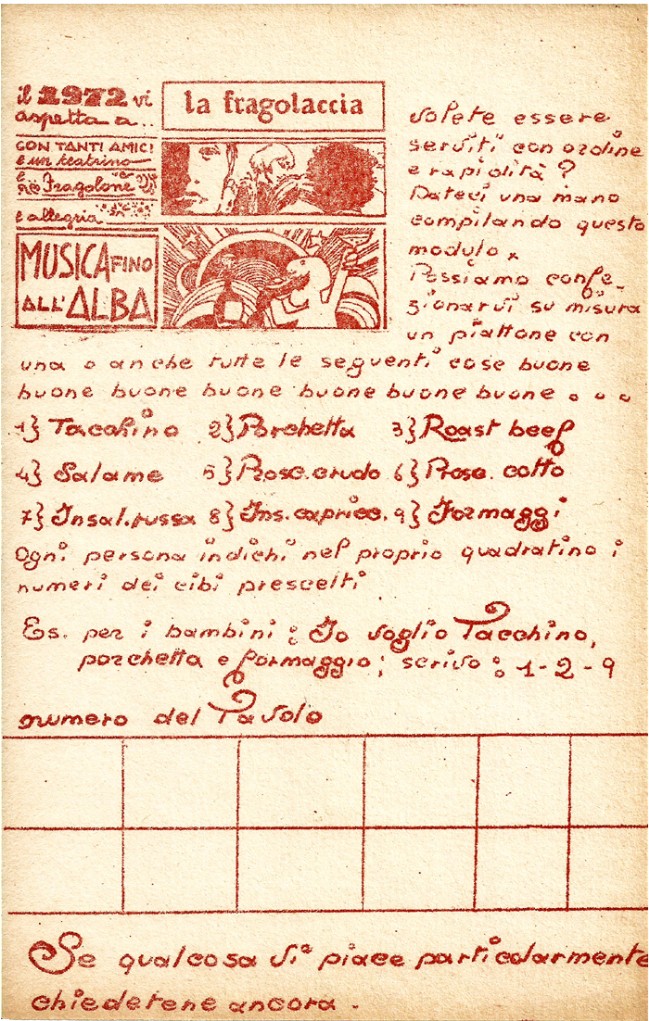 il 1972 vi
aspetta a...
CON TANTI AMICI
e un teatrino
e Fragolone
e allegria
MUSICA FINO
ALL'ALBA
la fragolaccia
Volete essere
serviti con ordine
e rapidità?
Dateci una mano
compilando questo
modulo.
Possiamo confe-
zionarvi su misura
un piattone con
una o anche tutte le seguenti cose buone
buone buone buone buone buone buone . . .
1} Tacchino 2} Porchetta 3} Roast beef
4} Salame 5} Prosc. crudo 6} Prosc. cotto
7} Insal. russa 8} Ins. capricc. 9} Formaggi
Ogni persona indichi nel proprio quadratino i
numeri dei cibi prescelti
Es. per i bambini: Io voglio Tacchino,
porchetta e formaggio; scrivo: 1-2-9
numero del Tavolo
Se qualcosa vi piace particolarmente
chiedetene ancora.